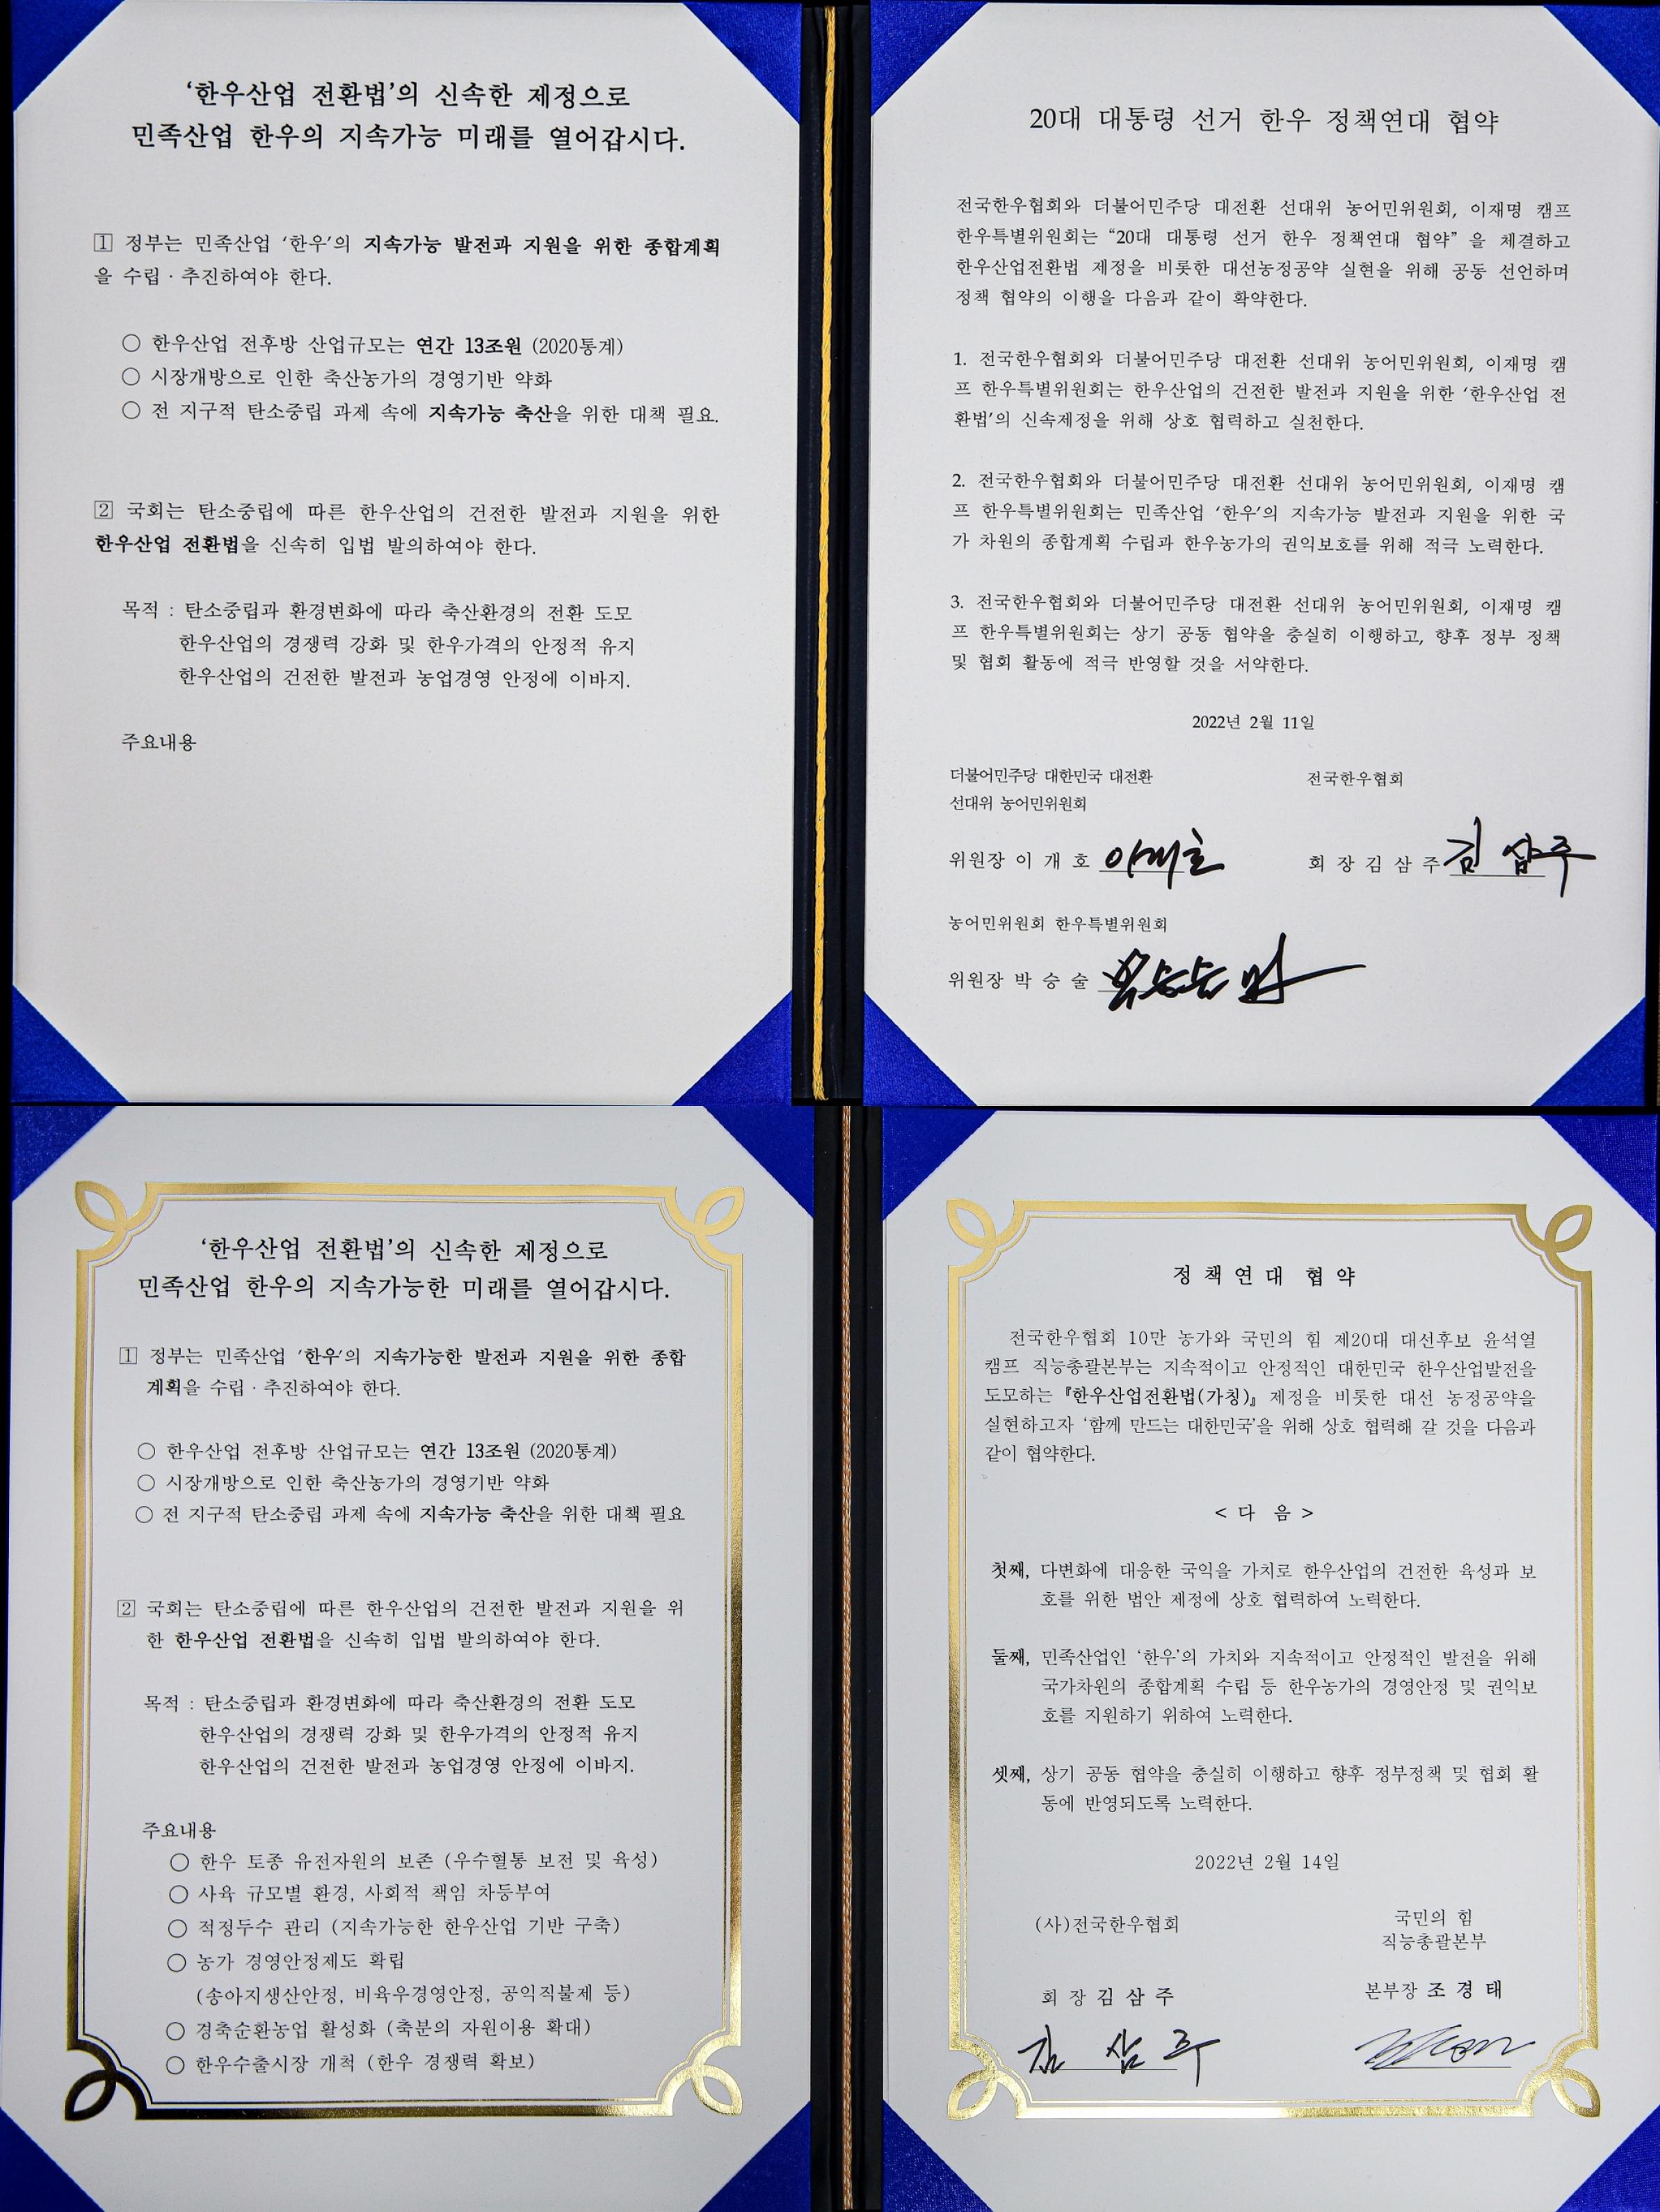 ‘한우산업 전환법’의 신속한 제정으로
민족산업 한우의 지속가능 미래를 열어갑시다.
1 정부는 민족산업 ‘한우’의 지속가능 발전과 지원을 위한 종합계획
을 수립 · 추진하여야 한다.
○ 한우산업 전후방 산업규모는 연간 13조원 (2020통계)
○ 시장개방으로 인한 축산농가의 경영기반 약화
○ 전 지구적 탄소중립 과제 속에 지속가능 축산을 위한 대책 필요.
2 국회는 탄소중립에 따른 한우산업의 건전한 발전과 지원을 위한
한우산업 전환법을 신속히 입법 발의하여야 한다.
목적 : 탄소중립과 환경변화에 따라 축산환경의 전환 도모
한우산업의 경쟁력 강화 및 한우가격의 안정적 유지
한우산업의 건전한 발전과 농업경영 안정에 이바지.
주요내용
20대 대통령 선거 한우 정책연대 협약
전국한우협회와 더불어민주당 대전환 선대위 농어민위원회, 이재명 캠프
한우특별위원회는 “20대 대통령 선거 한우 정책연대 협약” 을 체결하고
한우산업전환법 제정을 비롯한 대선농정공약 실현을 위해 공동 선언하며
정책 협약의 이행을 다음과 같이 확약한다.
1. 전국한우협회와 더불어민주당 대전환 선대위 농어민위원회, 이재명 캠
프 한우특별위원회는 한우산업의 건전한 발전과 지원을 위한 ‘한우산업 전
환법’의 신속제정을 위해 상호 협력하고 실천한다.
2. 전국한우협회와 더불어민주당 대전환 선대위 농어민위원회, 이재명 캠
프 한우특별위원회는 민족산업 ‘한우’의 지속가능 발전과 지원을 위한 국
가 차원의 종합계획 수립과 한우농가의 권익보호를 위해 적극 노력한다.
3. 전국한우협회와 더불어민주당 대전환 선대위 농어민위원회, 이재명 캠
프 한우특별위원회는 상기 공동 협약을 충실히 이행하고, 향후 정부 정책
및 협회 활동에 적극 반영할 것을 서약한다.
2022년 2월 11일
더불어민주당 대한민국 대전환
선대위 농어민위원회
전국한우협회
위원장 이 개 호 이개호
회 장 김 삼 주 김 삼주
농어민위원회 한우특별위원회
위원장 박 승 술
‘한우산업 전환법’의 신속한 제정으로
민족산업 한우의 지속가능한 미래를 열어갑시다.
1 정부는 민족산업 ‘한우’의 지속가능한 발전과 지원을 위한 종합
계획을 수립 · 추진하여야 한다.
○ 한우산업 전후방 산업규모는 연간 13조원 (2020통계)
○ 시장개방으로 인한 축산농가의 경영기반 약화
○ 전 지구적 탄소중립 과제 속에 지속가능 축산을 위한 대책 필요
2 국회는 탄소중립에 따른 한우산업의 건전한 발전과 지원을 위
한 한우산업 전환법을 신속히 입법 발의하여야 한다.
목적 : 탄소중립과 환경변화에 따라 축산환경의 전환 도모
한우산업의 경쟁력 강화 및 한우가격의 안정적 유지
한우산업의 건전한 발전과 농업경영 안정에 이바지.
주요내용
○ 한우 토종 유전자원의 보존 (우수혈통 보전 및 육성)
○ 사육 규모별 환경, 사회적 책임 차등부여
○ 적정두수 관리 (지속가능한 한우산업 기반 구축)
○ 농가 경영안정제도 확립
(송아지생산안정, 비육우경영안정, 공익직불제 등)
○ 경축순환농업 활성화 (축분의 자원이용 확대)
○ 한우수출시장 개척 (한우 경쟁력 확보)
정 책 연 대 협 약
전국한우협회 10만 농가와 국민의 힘 제20대 대선후보 윤석열
캠프 직능총괄본부는 지속적이고 안정적인 대한민국 한우산업발전을
도모하는 『한우산업전환법(가칭)』 제정을 비롯한 대선 농정공약을
실현하고자 ‘함께 만드는 대한민국’을 위해 상호 협력해 갈 것을 다음과
같이 협약한다.
< 다 음 >
첫째, 다변화에 대응한 국익을 가치로 한우산업의 건전한 육성과 보
호를 위한 법안 제정에 상호 협력하여 노력한다.
둘째, 민족산업인 ‘한우’의 가치와 지속적이고 안정적인 발전을 위해
국가차원의 종합계획 수립 등 한우농가의 경영안정 및 권익보
호를 지원하기 위하여 노력한다.
셋째, 상기 공동 협약을 충실히 이행하고 향후 정부정책 및 협회 활
동에 반영되도록 노력한다.
2022년 2월 14일
(사)전국한우협회
국민의 힘
직능총괄본부
회 장 김 삼 주
본부장 조 경 태
김 삼 주